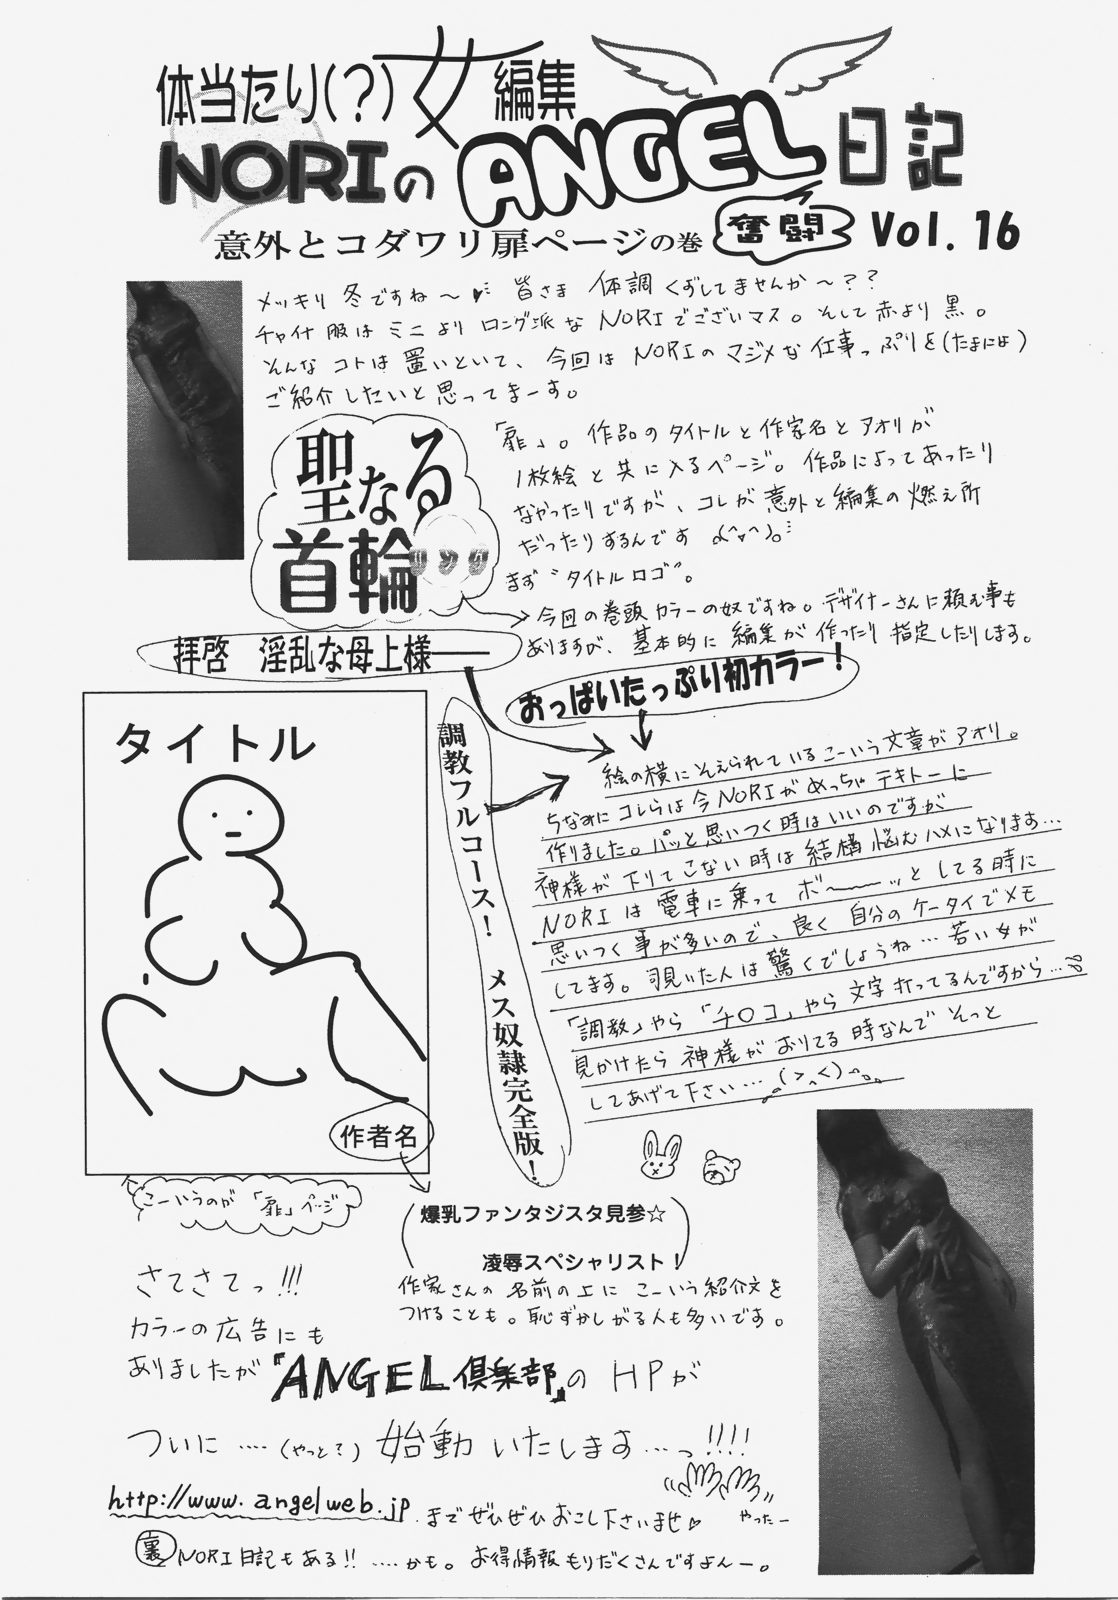 体当たり(?)女編集
NORIのANGEL日記
意外とコダワリ扉ページの巻 奮闘 Vol. 16
メッキリ 冬ですね〜 皆さま 体調 くずしてませんか〜??
チャイナ服は ミニより ロング派な NORIでございマス。そして赤より 黒。
そんな コトは 置いといて、今回は NORIの マジメな 仕事っぷりを(たまにはよ)
ご紹介したいと思ってまーす。
聖なる
首輪
「扉」。作品のタイトルと作家名とアオリが
1枚絵と共に入るページ。作品によってあったり
なかったりですが、コレが意外と編集の燃え所
だったりするんです
まず "タイトルロゴ"。
今回の巻頭カラーの奴ですね。デザイナーさんに頼む事も
ありますが、基本的に編集が作ったり 指定したりします。
拝啓 淫乱な母上様――
おっぱいたっぷり初カラー!
調教フルコース! メス奴隷完全版!
タイトル
作者名
こーいうのが「扉」ページ
絵の横にそえられているこーいう文章がアオリ。
ちなみに コレらは今NORIがめっちゃテキトーに
作りました。パッと思いつく時はいいのですが
神様が下りてこない時は 結構悩むハメになります…
NORIは電車に乗って ボ〜〜ッと してる時に
思いつく事が多いので、良く 自分のケータイでメモ
してます。覗いた人は驚くでしょうね…若い女が
「調教」やら「チ○コ」やら文字打ってるんですから…
見かけたら 神様が おりてる 時なんで そっと
してあげて下さい…(>_<)
爆乳ファンタジスタ見参☆
凌辱スペシャリスト!
作家さんの名前の上に こーいう紹介文を
つけることも。恥ずかしがる人も多いです。
さてさてっ!!!
カラーの広告にも
ありましたが『ANGEL倶楽部』の HPが
ついに ‥‥(やっと?) 始動 いたします…っ!!!!
http://www.angelweb.jp までぜひぜひおこし下さいませ
やったー
裏NORI日記もある!! ‥‥かも。お得情報もりだくさんですよんー。